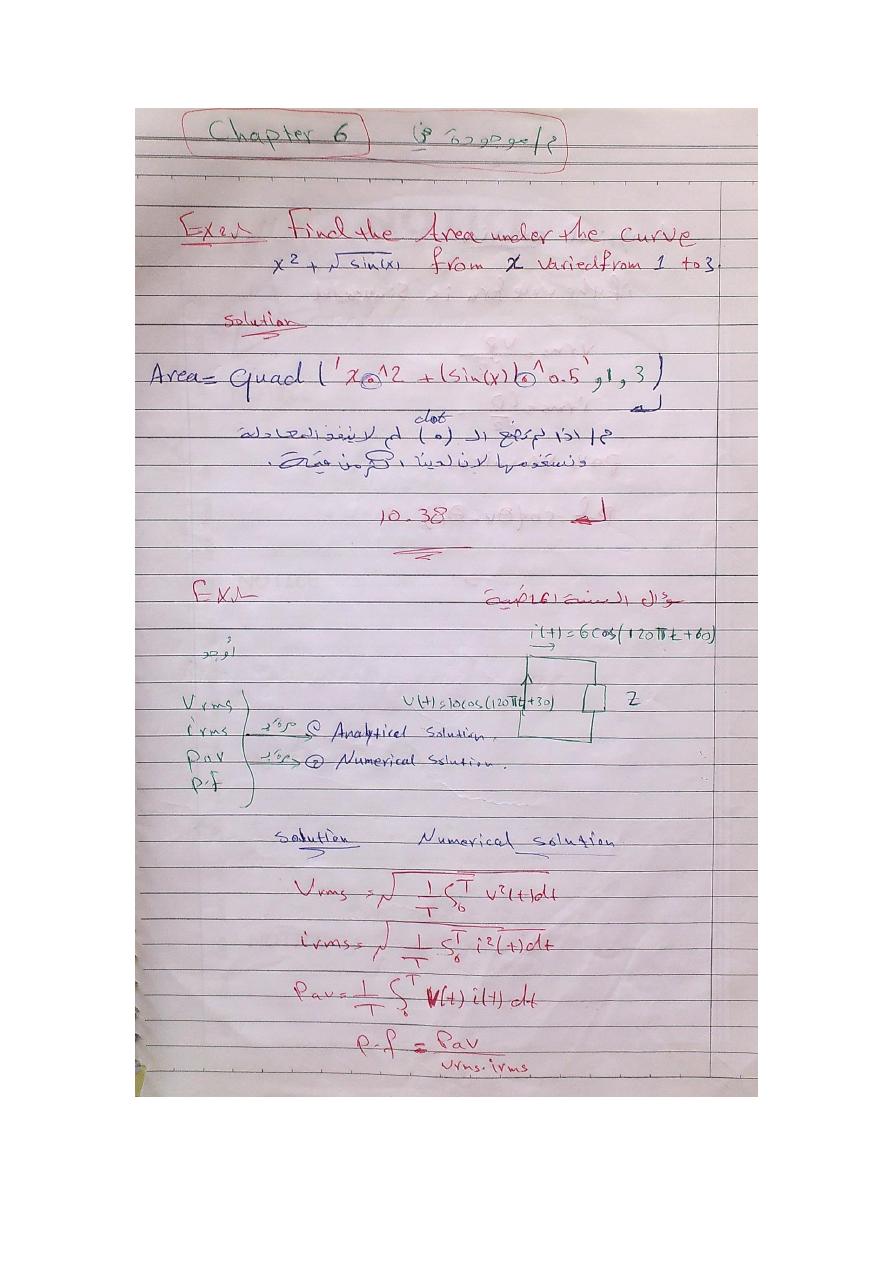 Chapter 6 م/ موجودة في
Ex2\ Find the Area under the curve
x² + √sin(x) from x varied from 1 to 3.
solution
Area = quad ('x.^2 + (sin(x)).^0.5',1,3)
dot
م/ اذا لم نضع ال (.) لم لا ينفذ المعادلة
ونستخدمها لان لدينا اكثر من قيمة.
10.38
Ex\ سؤال السنة الماضية
i(t) = 6cos(120πt+60)
أوجد
Vrms V(t)=10cos(120πt+30) Z
irms مرة ① Analytical Solution.
Pav مرة ② Numerical Solution.
P.f
Solution Numerical solution
Vrms = √ 1/T ∫₀ᵀ v²(t)dt
irms = √ 1/T ∫₀ᵀ i²(t)dt
Pav = 1/T ∫₀ᵀ V(t) i(t) dt
P.f = Pav
Vrms.irms